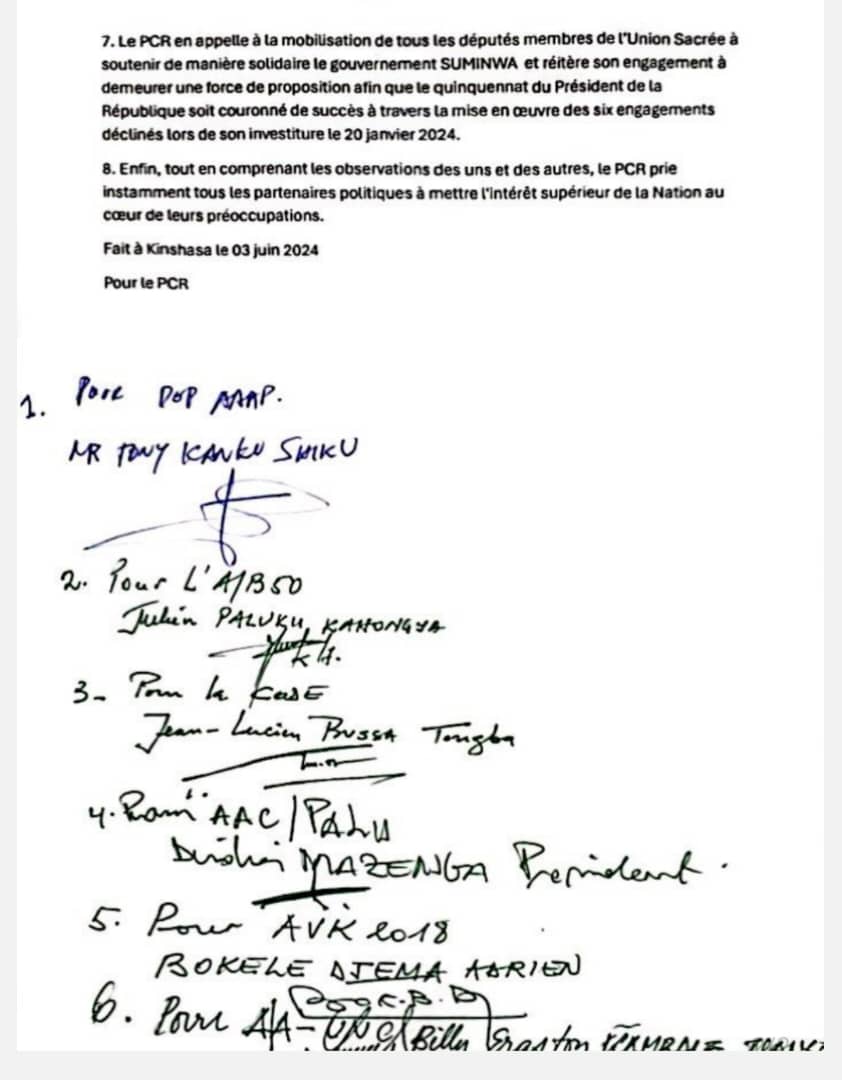 7. Le PCR en appelle à la mobilisation de tous les députés membres de l'Union Sacrée à
soutenir de manière solidaire le gouvernement SUMINWA et réitère son engagement à
demeurer une force de proposition afin que le quinquennat du Président de la
République soit couronné de succès à travers la mise en œuvre des six engagements
déclinés lors de son investiture le 20 janvier 2024.
8. Enfin, tout en comprenant les observations des uns et des autres, le PCR prie
instamment tous les partenaires politiques à mettre l'intérêt supérieur de la Nation au
cœur de leurs préoccupations.
Fait à Kinshasa le 03 juin 2024
Pour le PCR
1. Pour
MR TONY KANKU SHIKU
2. Pour L'A/B50
Julien PALUKU KAHONGYA
3- Pour la
Jean-Lucien BUSSA Tongba
4. AAC/PALU
MAZENGA President.
5. Pour AVK 2018
BOKELE DJEMA ADRIEN
6. Pour